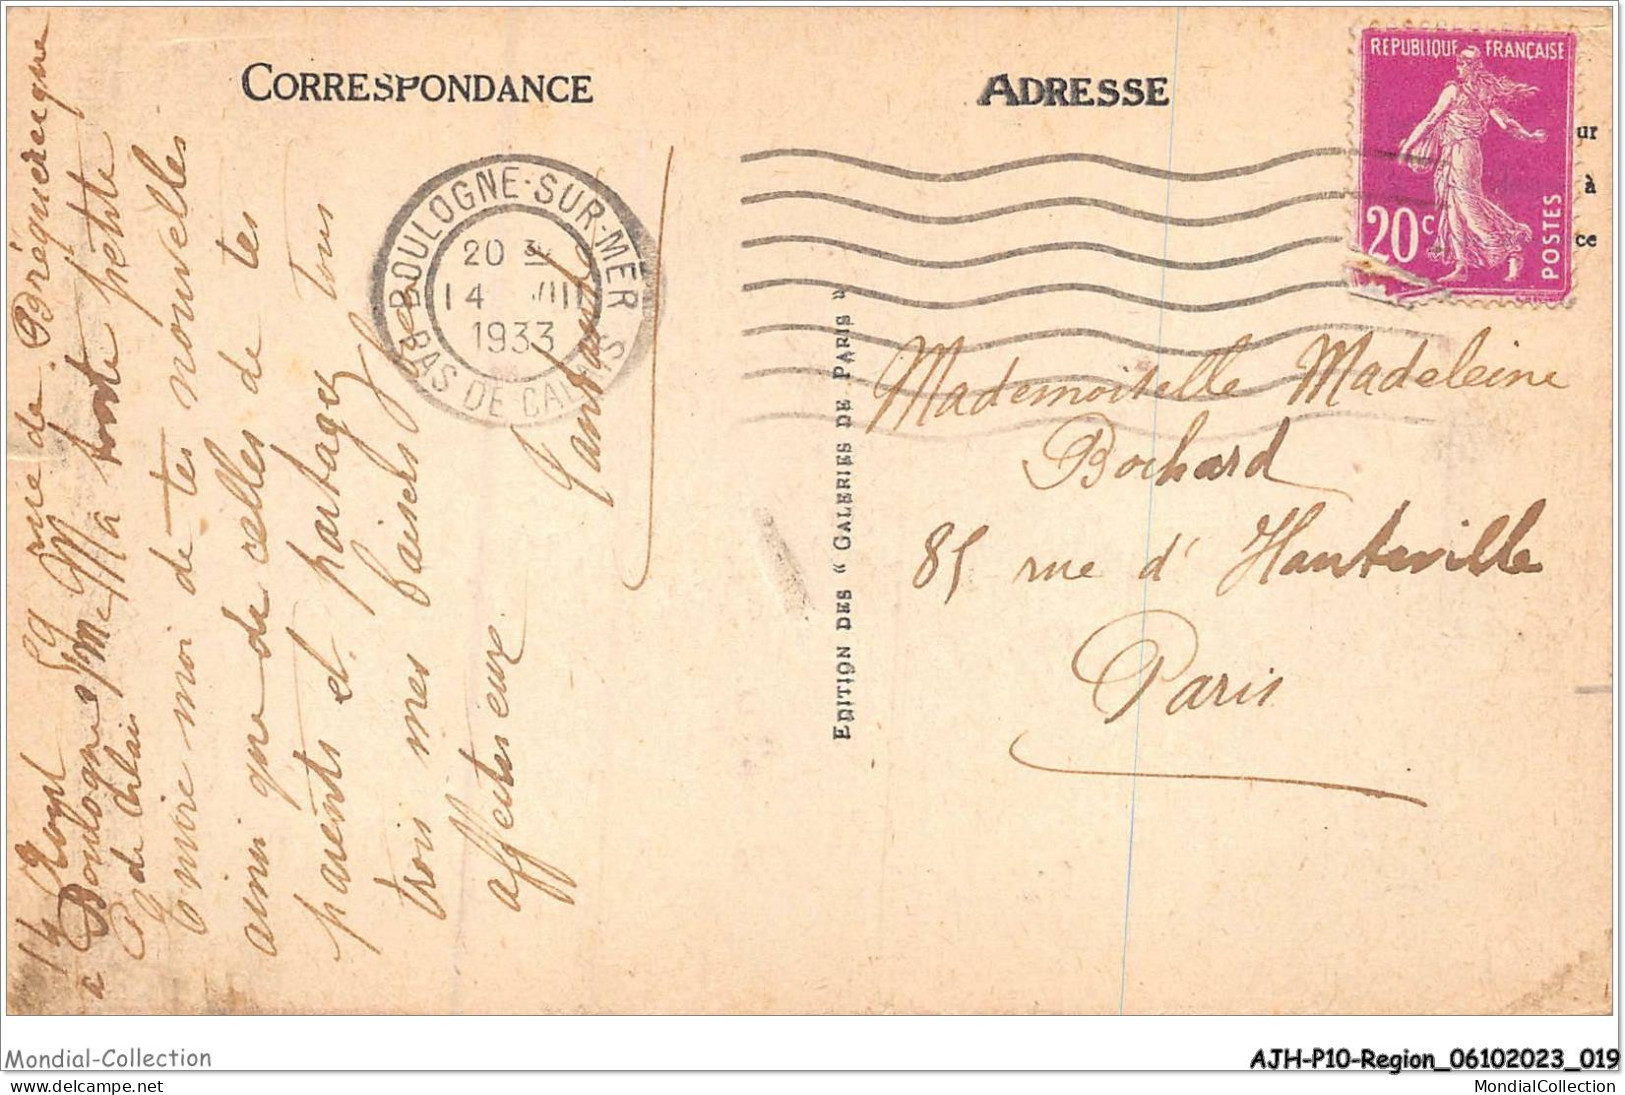 CORRESPONDANCE
ADRESSE
REPUBLIQUE FRANÇAISE
20c
POSTES
ur
à
ce
BOULOGNE-SUR-MER
20
14 VIII
1933
PAS DE CALAIS
14 Août 59 rue de Bréquerecque
à Boulogne s/m
P de Calais
Ma toute petite
Envoie moi de tes nouvelles
ainsi que de celles de tes
parents et partagez tous
trois mes baisers
affectueux
EDITION DES "GALERIES DE PARIS"
Mademoiselle Madeleine
Bochard
85 rue d'Hauteville
Paris
Mondial-Collection
AJH-P10-Region_06102023_019
delcampe.net
MondialCollection